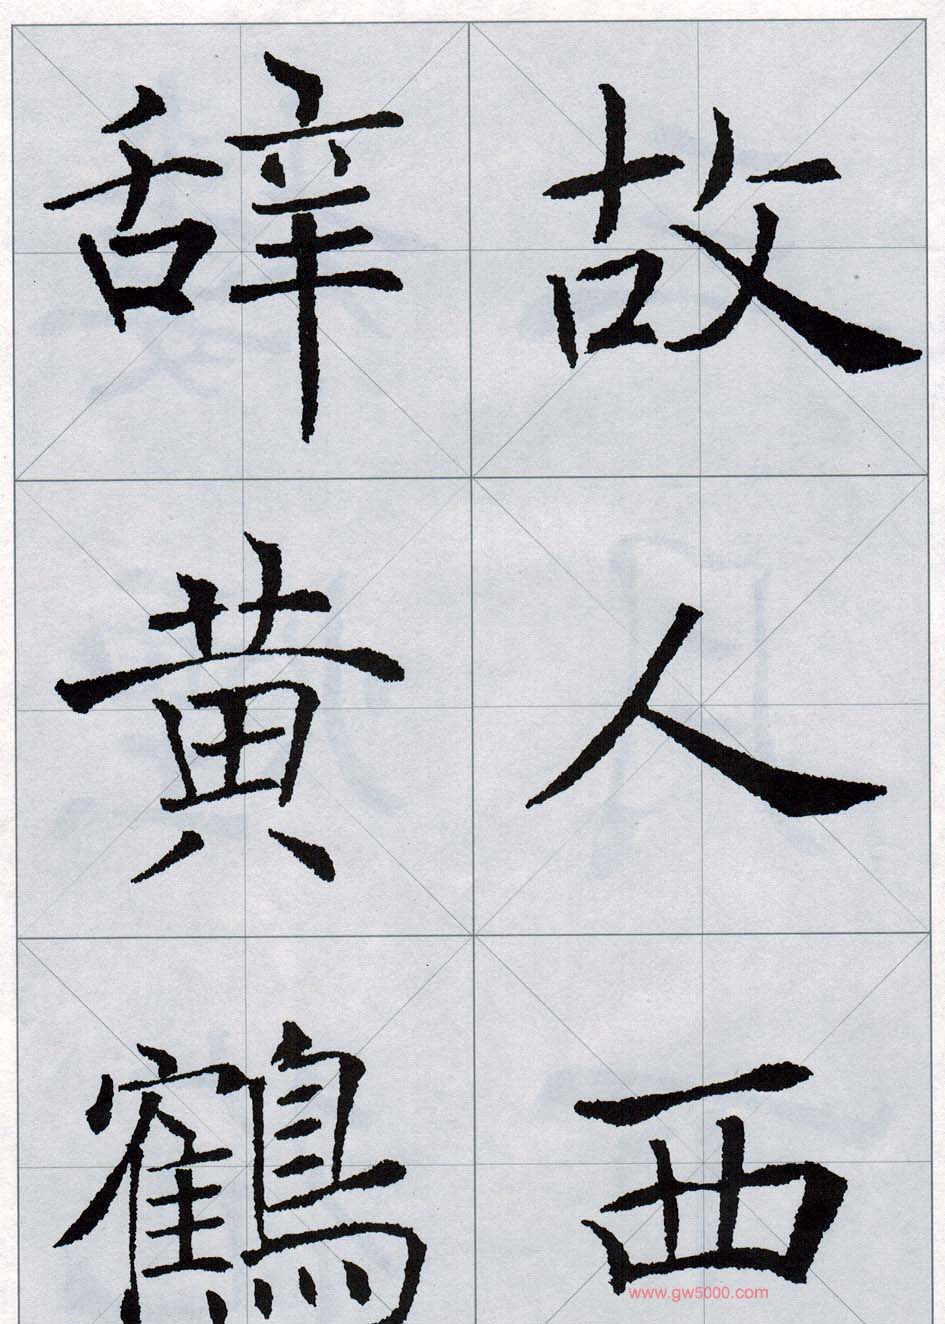 故人西
辞黄鹤
www.gw5000.com